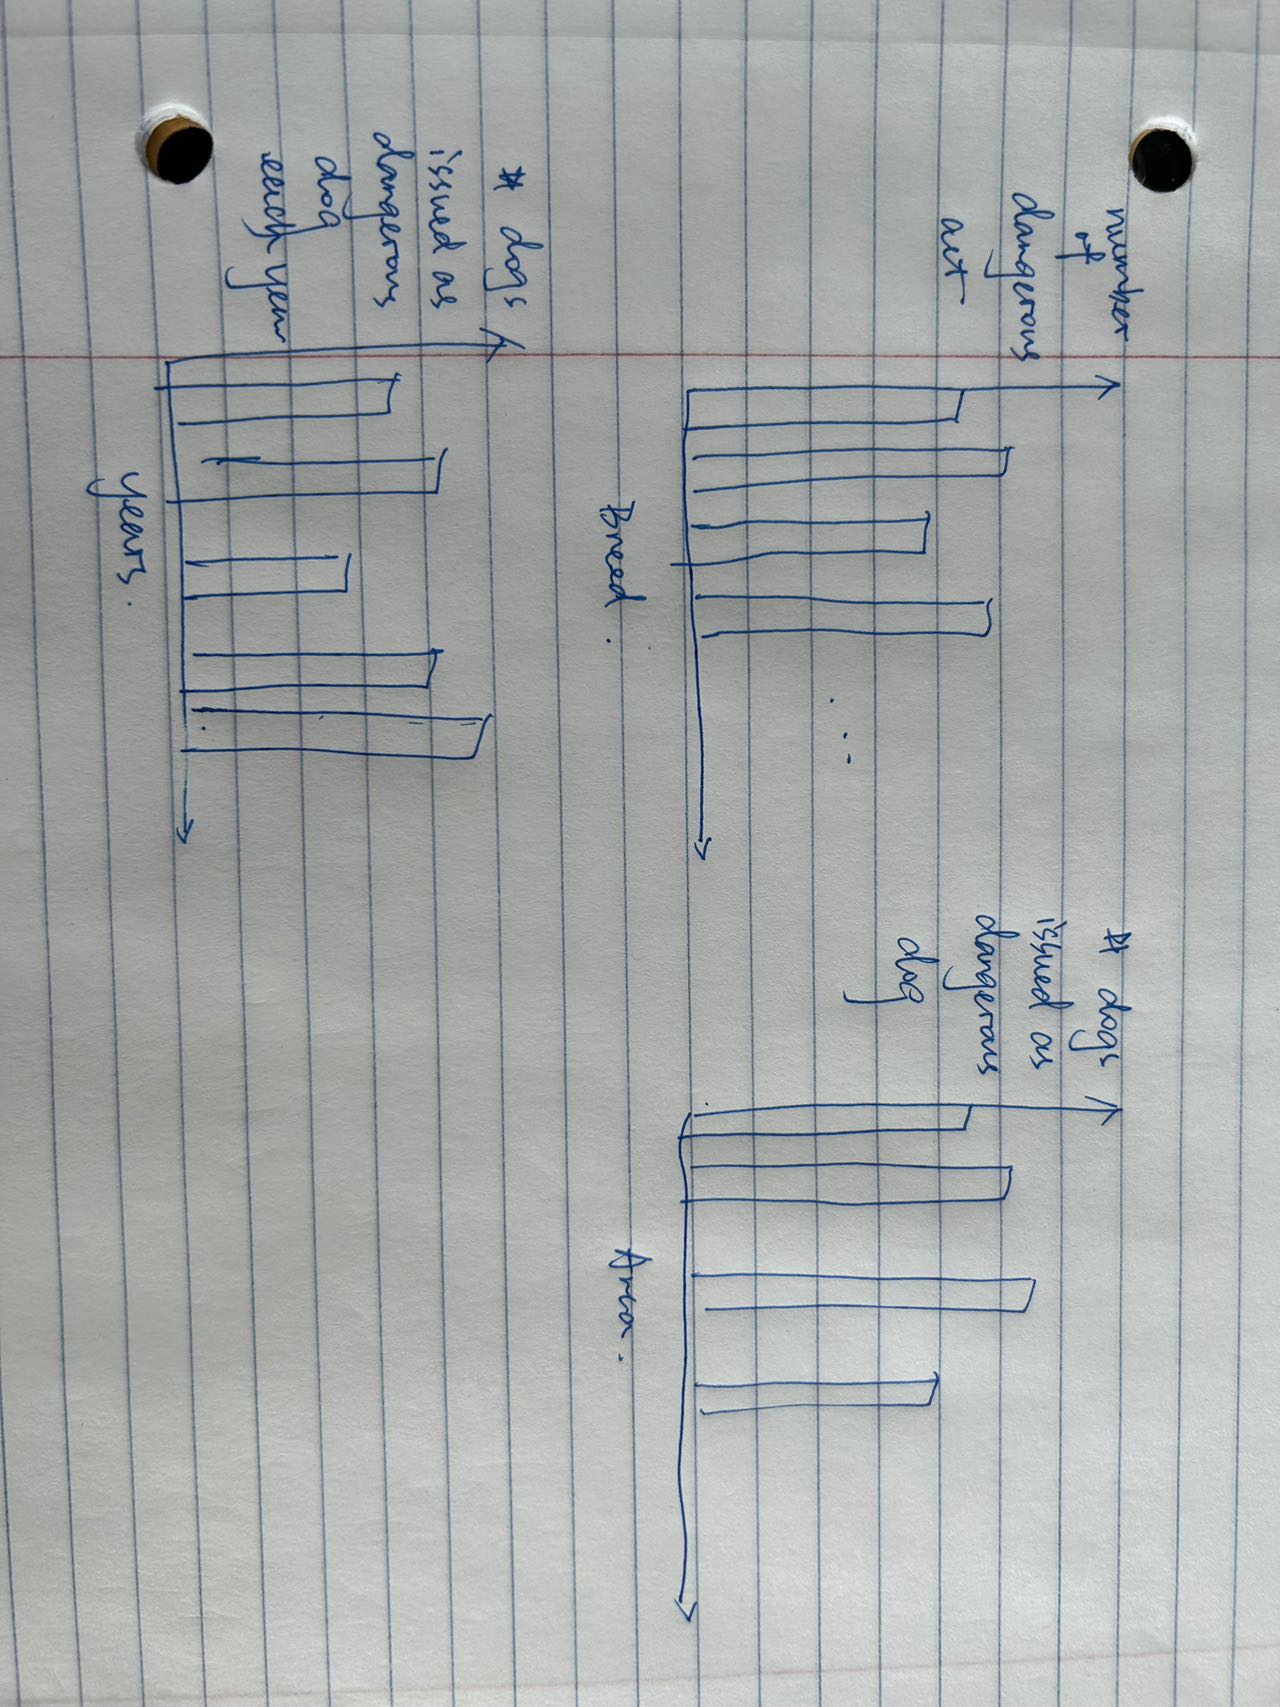 number
of
dangerous
act
Breed.
# dogs
issued as
dangerous
dog
Area.
# dogs
issued as
dangerous
dog
each year
years.